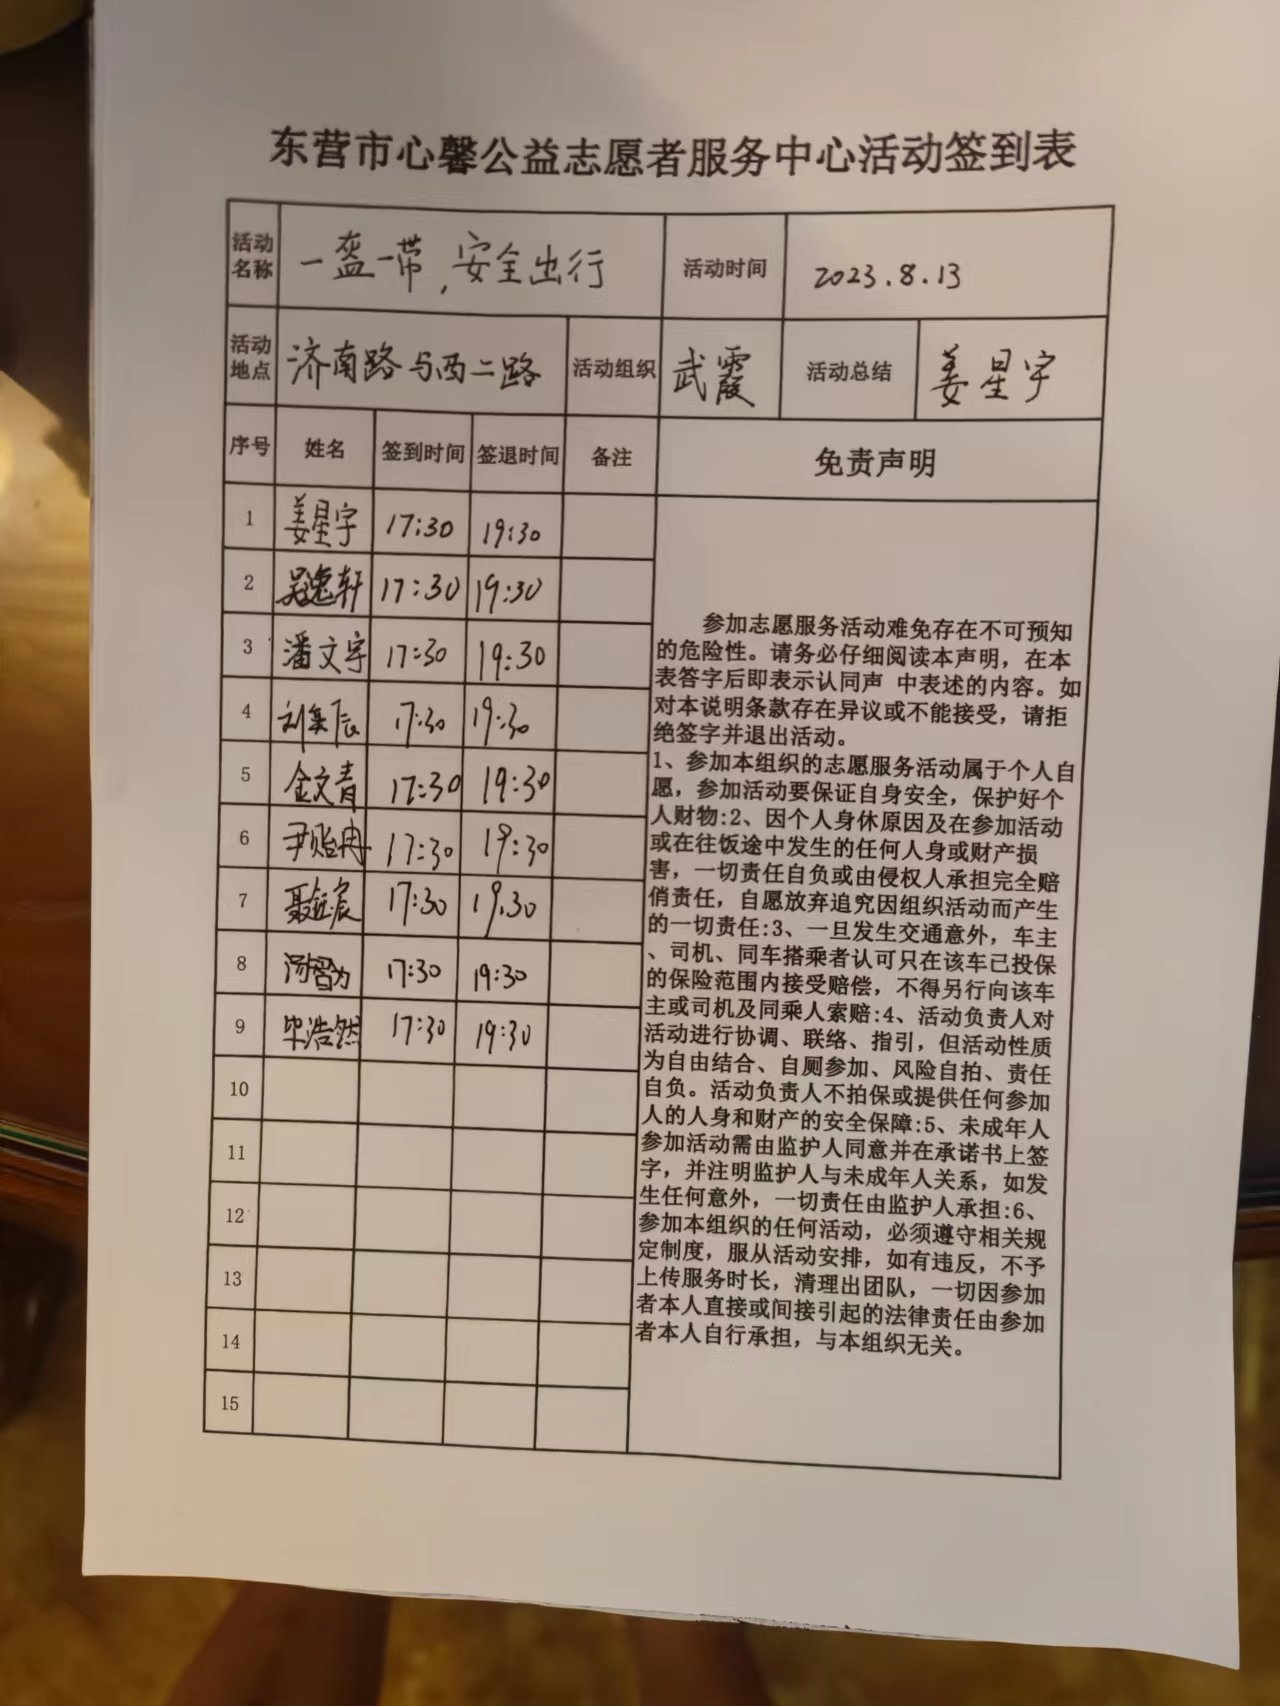 东营市心馨公益志愿者服务中心活动签到表
活动名称 一盔一带,安全出行 活动时间 2023.8.13
活动地点 济南路与西二路 活动组织 武霞 活动总结 姜星宇
序号 姓名 签到时间 签退时间 备注 免责声明
1 姜星宇 17:30 19:30
2 吴逸轩 17:30 19:30
3 潘文宇 17:30 19:30
4 刘奕辰 17:30 19:30
5 金文青 17:30 19:30
6 尹贻冉 17:30 19:30
7 聂 宸 17:30 19.30
8 17:30 19:30
9 毕浩然 17:30 19:30
10
11
12
13
14
15
参加志愿服务活动难免存在不可预知
的危险性。请务必仔细阅读本声明，在本
表答字后即表示认同声 中表述的内容。如
对本说明条款存在异议或不能接受，请拒
绝签字并退出活动。
1、参加本组织的志愿服务活动属于个人自
愿，参加活动要保证自身安全，保护好个
人财物:2、因个人身休原因及在参加活动
或在往饭途中发生的任何人身或财产损
害，一切责任自负或由侵权人承担完全赔
俏责任，自愿放弃追究因组织活动而产生
的一切责任:3、一旦发生交通意外，车主
、司机、同车搭乘者认可只在该车已投保
的保险范围内接受赔偿，不得另行向该车
主或司机及同乘人索赔:4、活动负责人对
活动进行协调、联络、指引，但活动性质
为自由结合、自厕参加、风险自拍、责任
自负。活动负责人不拍保或提供任何参加
人的人身和财产的安全保障:5、未成年人
参加活动需由监护人同意并在承诺书上签
字，并注明监护人与未成年人关系，如发
生任何意外，一切责任由监护人承担:6、
参加本组织的任何活动，必须遵守相关规
定制度，服从活动安排，如有违反，不予
上传服务时长，清理出团队，一切因参加
者本人直接或间接引起的法律责任由参加
者本人自行承担，与本组织无关。